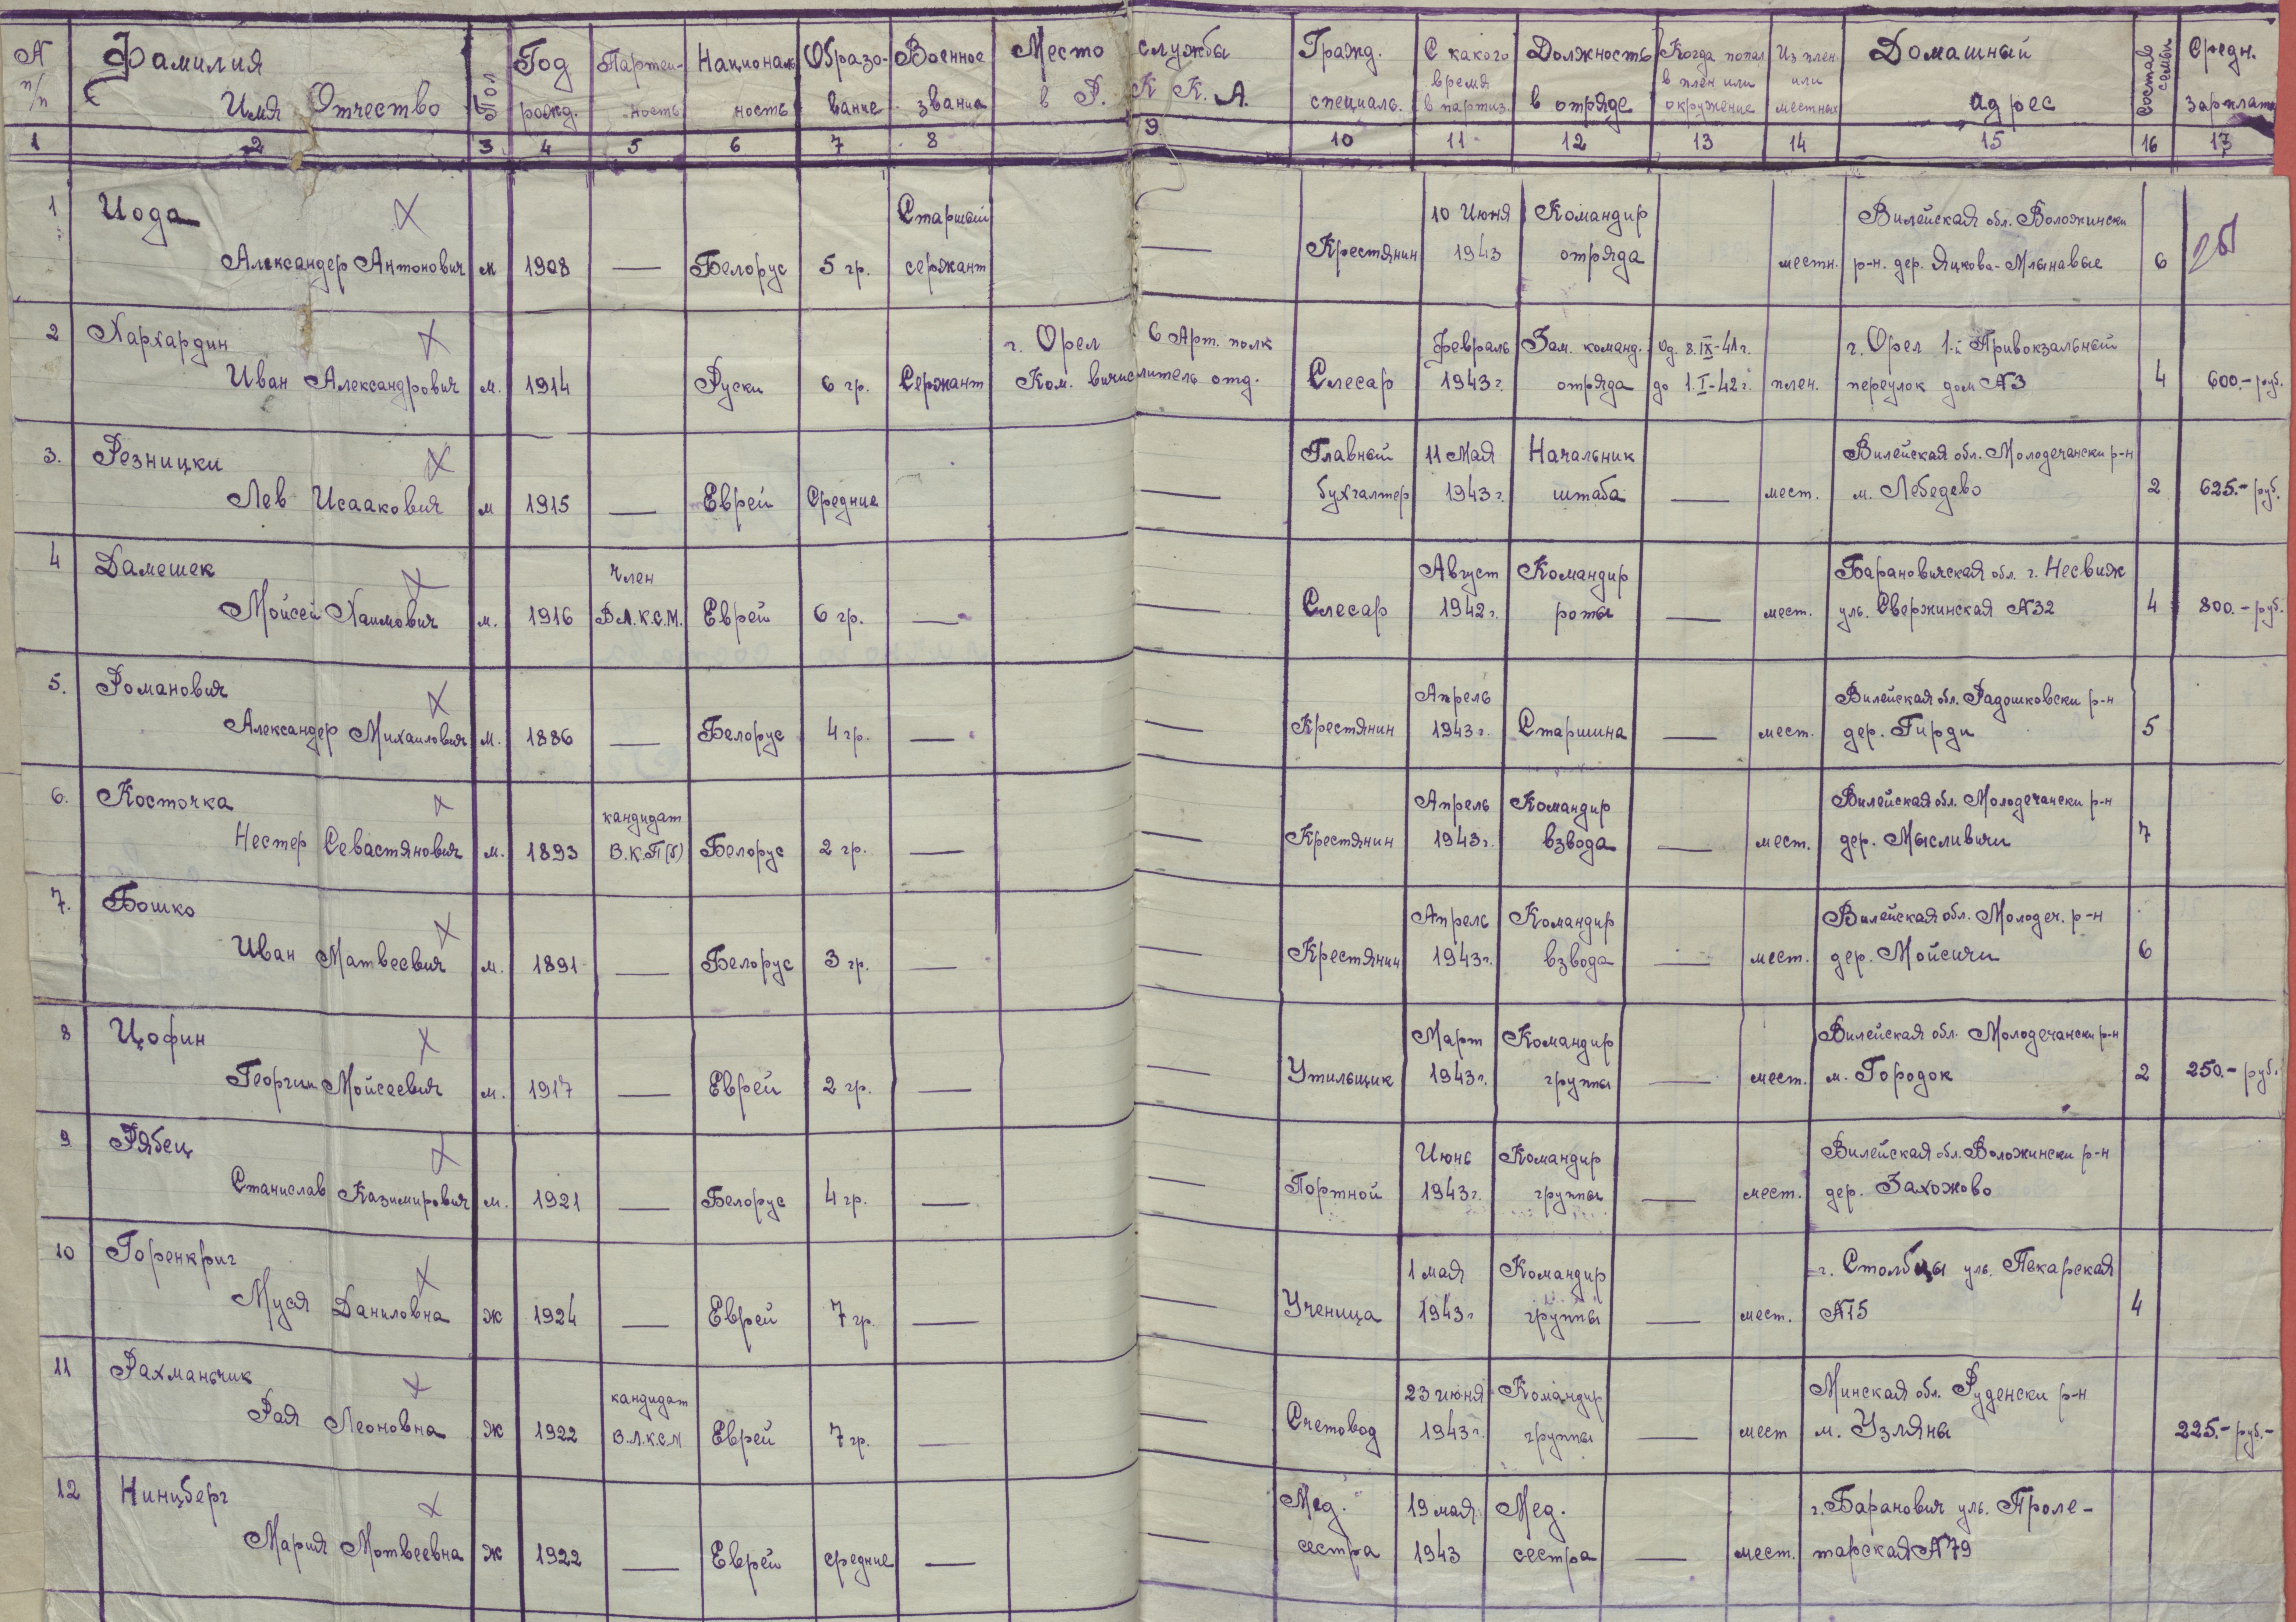 N п/п Фамилия Имя Отчество Пол Год рожд. Партей-ность Националь-ность Образо-вание Военное звание Место службы в Р. К К. А. Гражд. специаль. С какого время в партиз. Должность в отряде Когда попал в плен или окружение Из плен. или местных Домашный адрес Состав семьи Средн. зарплата
1 2 3 4 5 6 7 8 9 10 11 12 13 14 15 16 17
1 Иода Старший 10 Июня Командир Вилейская обл. Воложински
Александер Антонович м 1908 — Белорус 5 гр. сержант — Крестянин 1943 отряда местн. р-н. дер. Яцково-Млынавые 6
2 Хархардин г. Орел 6 Арт. полк февраль Зам. команд. Од. 8.IX-41г. г. Орел 1-й Привокзальный
Иван Александрович м. 1914 Руски 6 гр. Сержант Ком. вичислитель отд. Слесар 1943г. отряда до 1.I-42г. плен. переулок дом N3 4 600.- руб.
3. Резницки Главный 11 Мая Начальник Вилейская обл. Молодечански р-н
Лев Исаакович м 1915 — Еврей Средние — бухгалтер 1943г. штаба — мест. м. Лебедево 2 625.- руб.
4 Дамешек Член Август Командир Барановичская обл. г. Несвиж
Мойсей Хаимович м. 1916 В.Л.К.С.М. Еврей 6 гр. — — Слесар 1942г. роты — мест. уль. Свержинская N32 4 800.- руб.
5. Романович Апрель Вилейская обл. Радошковски р-н
Александер Михаилович м. 1886 — Белорус 4 гр. — — Крестянин 1943г. Старшина — мест. дер. Гирди 5
6. Косточка кандидат Апрель Командир Вилейская обл. Молодечански р-н
Нестер Севастянович м. 1893 В.К.П(б) Белорус 2 гр. — — Крестянин 1943г. взвода — мест. дер. Мысливичи 7
7. Бошко Апрель Командир Вилейская обл. Молодеч. р-н
Иван Матвеевич м. 1891 — Белорус 3 гр. — — Крестянин 1943г. взвода — мест. дер. Мойсичи 6
8 Цофин Март Командир Вилейская обл. Молодечански р-н
Георгии Мойсеевич м. 1917 — Еврей 2 гр. — — Утильщик 1943г. группы — мест. м. Городок 2 250.- руб.
9 Рябец Июнь Командир Вилейская обл. Воложински р-н
Станислав Казимирович м. 1921 — Белорус 4 гр. — — Портной 1943г. группы — мест. дер. Захожово
10 Горенкриг 1 мая Командир г. Столбцы уль. Пекарская
Муся Даниловна ж 1924 — Еврей 7 гр. — — Ученица 1943г. группы — мест. N15 4
11 Рахманьчик кандидат 23 июня Командир Минская обл. Руденски р-н
Рая Леоновна ж 1922 В.Л.К.С.М Еврей 7 гр. — — Счетовод 1943г. группы — мест м. Узляны 225.- руб.-
12 Нинцберг Мед. 19 мая Мед. г. Баранович уль. Проле-
Мария Мотвеевна ж 1922 — Еврей средние — — сестра 1943 сестра — мест. тарская N79